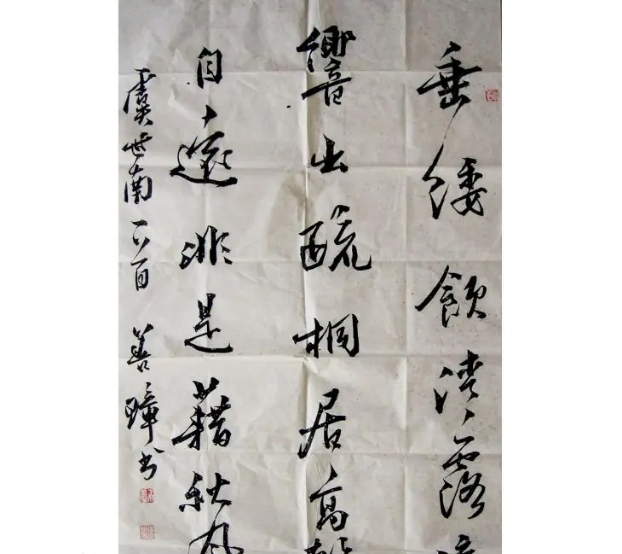 垂緌飲清露流
響出疏桐居高聲
自遠非是藉秋風
虞世南一首 善璋书